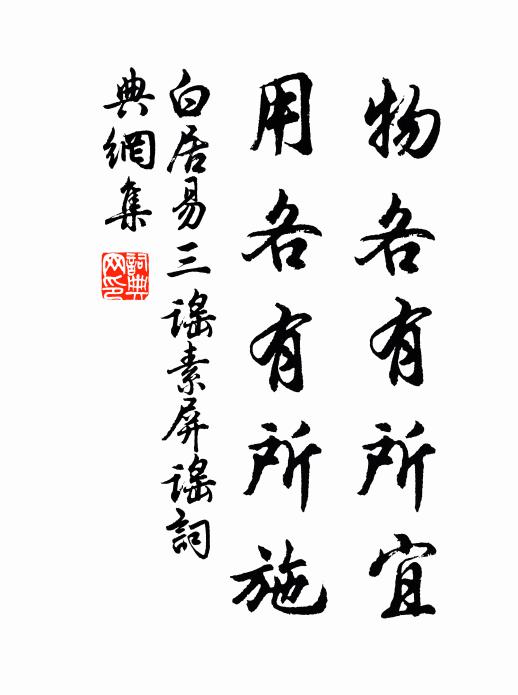 物各有所宜
用各有所施
白居易三謠素屏謠詞
典網集
詞典网印